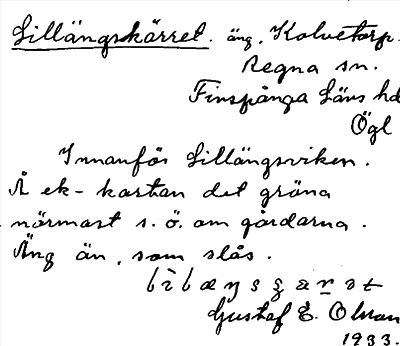 Lillängskärret. äng. Kolvetorp.
Regna sn.
Finspånga Läns hd
Ögl
Innanför Lillängsviken.
Å ek-kartan det gröna
närmast s. ö. om gårdarna.
Äng än, som slås.
Gustaf E. Olsson
1933.